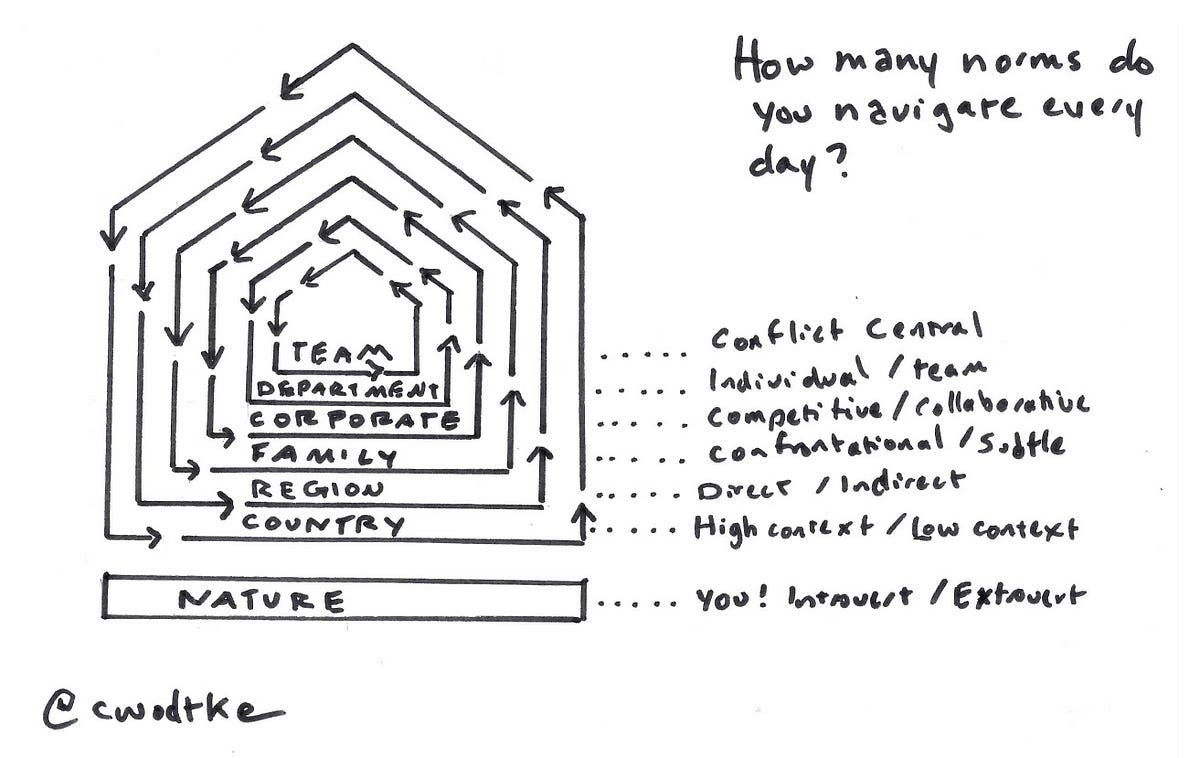 How many norms do
you navigate every
day?
TEAM
DEPARTMENT
CORPORATE
FAMILY
REGION
COUNTRY
NATURE
Conflict Central
Individual / team
Competitive / Collaborative
Confrontational / Subtle
Direct / Indirect
High context / Low context
You! Introvert / Extrovert
@cwodtke